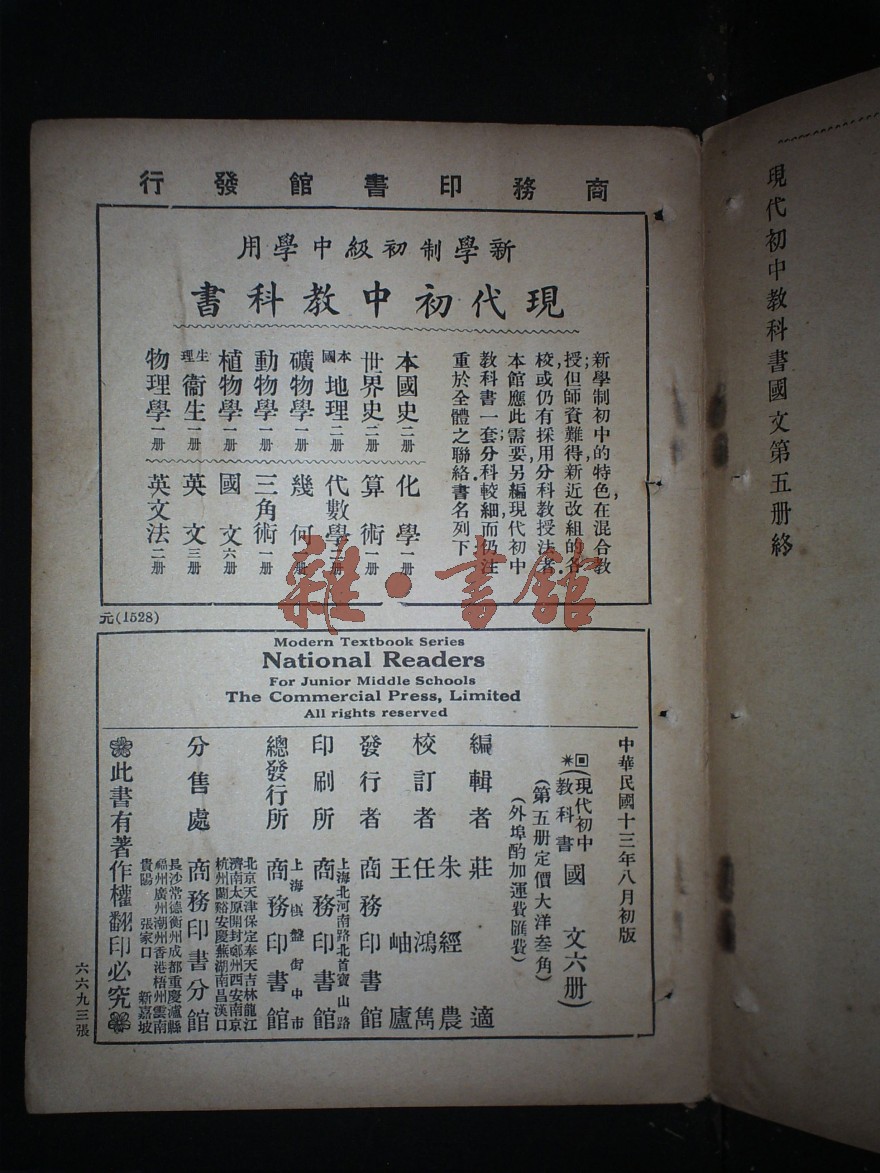 現代初中教科書國文第五册終
商務印書館發行
新學制初級中學用
現代初中教科書
新學制初中的特色在混合教
授但師資難得新近改組的各
校或仍有採用分科教授法者
本館應此需要另編現代初中
教科書一套分科較細而仍注
重於全體之聯絡書名列下
本國史二册
世界史二册
本國地理二册
礦物學一册
動物學一册
植物學一册
生理衞生一册
物理學一册
化學一册
算術一册
代數學二册
幾何一册
三角術一册
國文六册
英文三册
英文法二册
雜·書館
元(1528)
Modern Textbook Series
National Readers
For Junior Middle Schools
The Commercial Press, Limited
All rights reserved
中華民國十三年八月初版
(現代初中教科書 國文六册)
(第五册定價大洋叁角)
(外埠酌加運費匯費)
編輯者 莊適
校訂者 朱經農 任鴻雋 王岫廬
發行者 商務印書館
上海北河南路北首寶山路
印刷所 商務印書館
上海棋盤街中市
總發行所 商務印書館
北京天津保定奉天吉林龍江
濟南太原開封鄭州西安南京
杭州蘭谿安慶蕪湖南昌漢口
分售處 商務印書分館
長沙常德衡州成都重慶瀘縣
福州廣州潮州香港梧州雲南
貴陽 張家口 新嘉坡
此書有著作權翻印必究
六六九三張